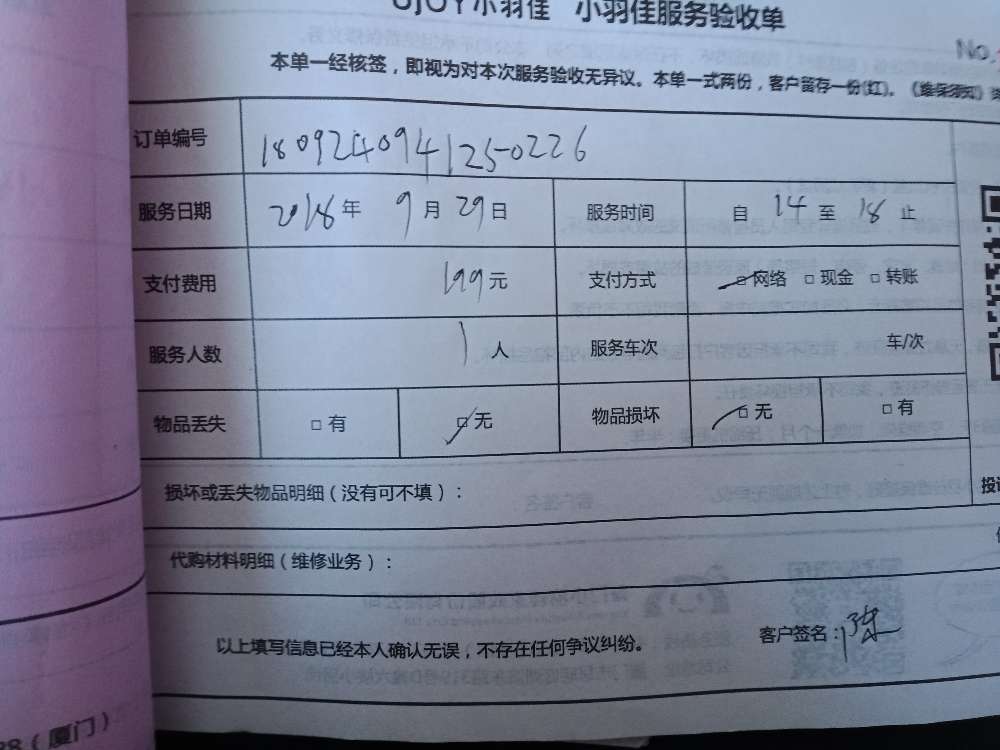 UJOY小羽佳 小羽佳服务验收单
No.
本单一经核签，即视为对本次服务验收无异议。本单一式两份，客户留存一份(红)。《维保须知》
订单编号 180924094125-0226
服务日期 2018年 9月 29日 服务时间 自 14 至 18 止
支付费用 199元 支付方式 □网络 □现金 □转账
服务人数 1人 服务车次 车/次
物品丢失 □有 □无 物品损坏 □无 □有
损坏或丢失物品明细（没有可不填）：
代购材料明细（维修业务）：
以上填写信息已经本人确认无误，不存在任何争议纠纷。 客户签名：陈
（厦门）